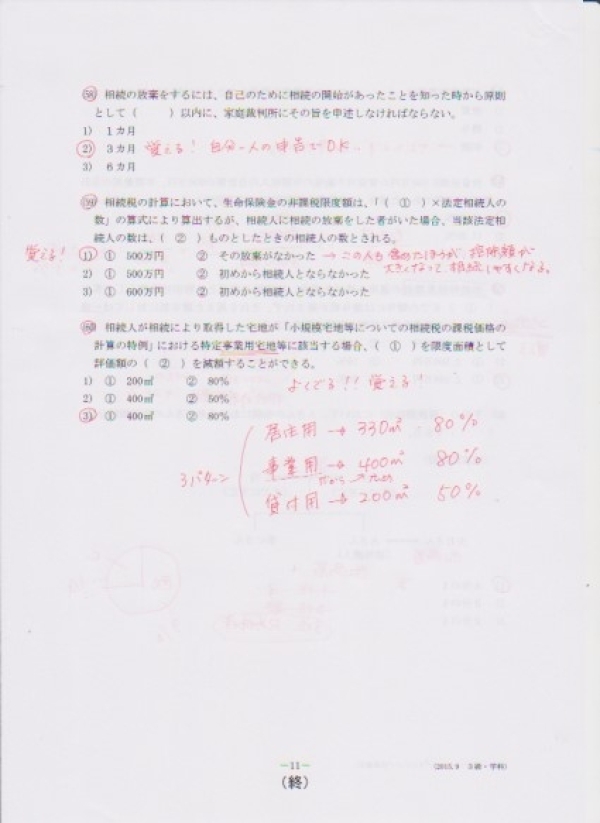 (58) 相続の放棄をするには、自己のために相続の開始があったことを知った時から原則
として（　　）以内に、家庭裁判所にその旨を申述しなければならない。
1) 1カ月
2) 3カ月 覚える！ 自分一人の申告でOK.
3) 6カ月
(59) 相続税の計算において、生命保険金の非課税限度額は、「（ ① ）×法定相続人の
数」の算式により算出するが、相続人に相続の放棄をした者がいた場合、当該法定相
続人の数は、（ ② ）ものとしたときの相続人の数とされる。
覚える！ 1) ① 500万円 ② その放棄がなかった → この人も含めたほうが、控除額が
大きくなって相続しやすくなる。
2) ① 500万円 ② 初めから相続人とならなかった
3) ① 600万円 ② 初めから相続人とならなかった
(60) 相続人が相続により取得した宅地が「小規模宅地等についての相続税の課税価格の
計算の特例」における特定事業用宅地等に該当する場合、（ ① ）を限度面積として
評価額の（ ② ）を減額することができる。
1) ① 200㎡ ② 80%
2) ① 400㎡ ② 50%
3) ① 400㎡ ② 80%
よくでる！！ 覚える！
居住用 → 330㎡ 80%
3パターン 事業用 → 400㎡ 80%
貸付用 → 200㎡ 50%
－11－
（終）
(2015.9 3級・学科)